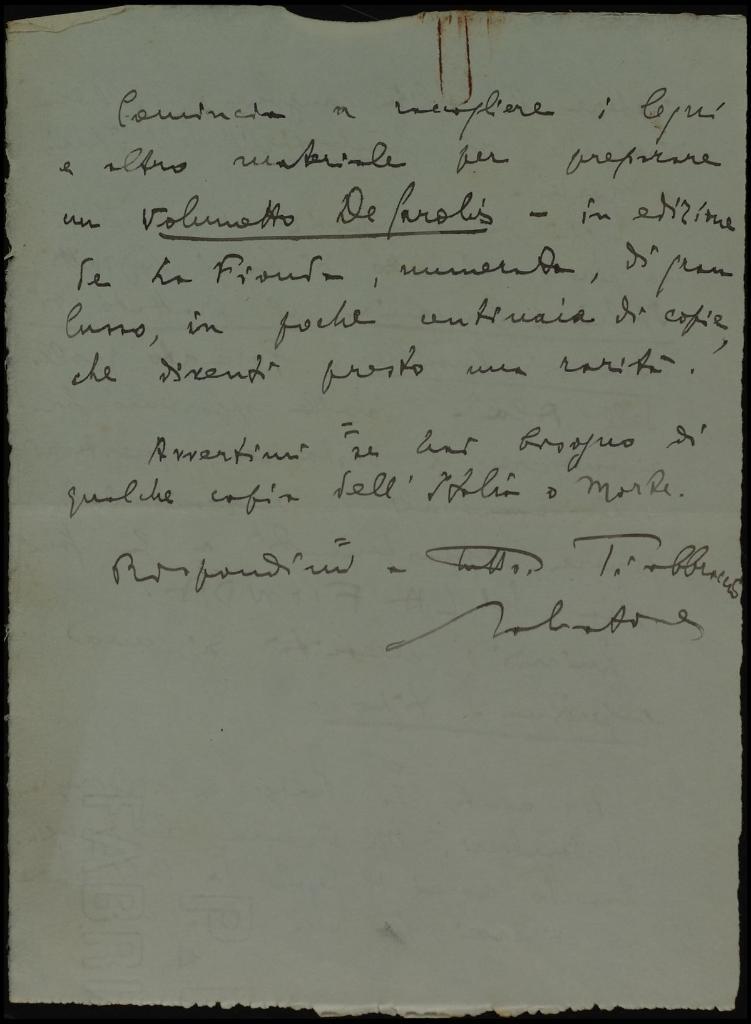 Comincia a raccogliere i legni
e altro materiale per preparare
un Volumetto De Carolis - in edizione
de La Fionda, numerata, di gran
lusso, in poche centinaia di copie,
che diventi presto una rarità.
Avvertimi se hai bisogno di
qualche copia dell'Italia o Morte.
Rispondimi a tutto. Ti abbraccio
Salvatore